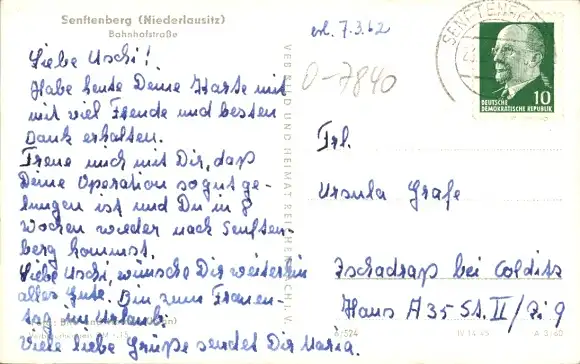 Senftenberg (Niederlausitz)
Bahnhofstraße
Liebe Uschi!
Habe heute Deine Karte mit
mit viel Freude und besten
Dank erhalten.
Freue mich mit Dir, daß
Deine Operation so gut ge-
lungen ist und Du in 8
Wochen wieder nach Senften-
berg kommst.
Liebe Uschi, wünsche Dir weiterhin
alles Gute. Bin zum Frauen-
tag im Urlaub.
Viele liebe Grüße sendet Dir Maria.
VEB BILD UND HEIMAT REICHENBACH I. V.
erh. 7.3.62
0-7840
SENFTENBERG
10
DEUTSCHE
DEMOKRATISCHE REPUBLIK
Frl.
Ursula Grafe
Zschadraß bei Colditz
Haus A35 St. II / Zi 9